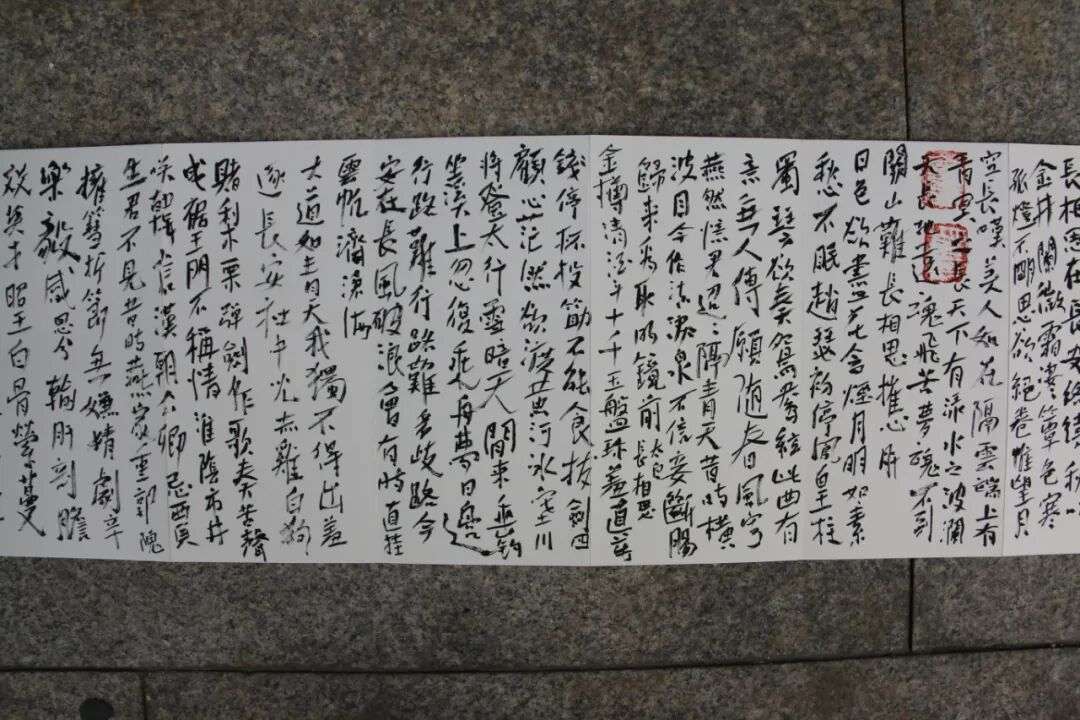 長相思在長安絡緯秋吟
金井闌微霜淒簟色寒
孤燈不明思欲絕卷帷望月
空長嘆美人如花隔雲端上有
青冥之長天下有淥水之波瀾
天長地遠魂飛苦夢魂不到
關山難長相思摧心肝
日色欲盡花含煙月明如素
愁不眠趙瑟初停鳳皇柱
蜀琴欲奏鴛鴦絃此曲有
意無人傳願隨春風寄
燕然憶君迢〻隔青天昔時橫
波目今作流淚泉不信妾斷腸
歸來看取明鏡前 太白長相思
金樽清酒斗十千玉盤珍羞直萬
錢停杯投筯不能食拔劍四
顧心茫然欲渡黃河冰塞川
將登太行雪暗天閒來垂釣
坐溪上忽復乘舟夢日邊
行路難行路難多歧路今
安在長風破浪會有時直挂
雲帆濟滄海
大道如青天我獨不得出羞
逐長安社中兒赤雞白狗
賭梨栗彈劍作歌奏苦聲
曳裾王門不稱情淮陰市井
咲韓信漢朝公卿忌賈
生君不見昔時燕家重郭隗
擁篲折節無嫌猜劇辛
樂毅感恩分輸肝剖膽
效英才昭王白骨縈蔓